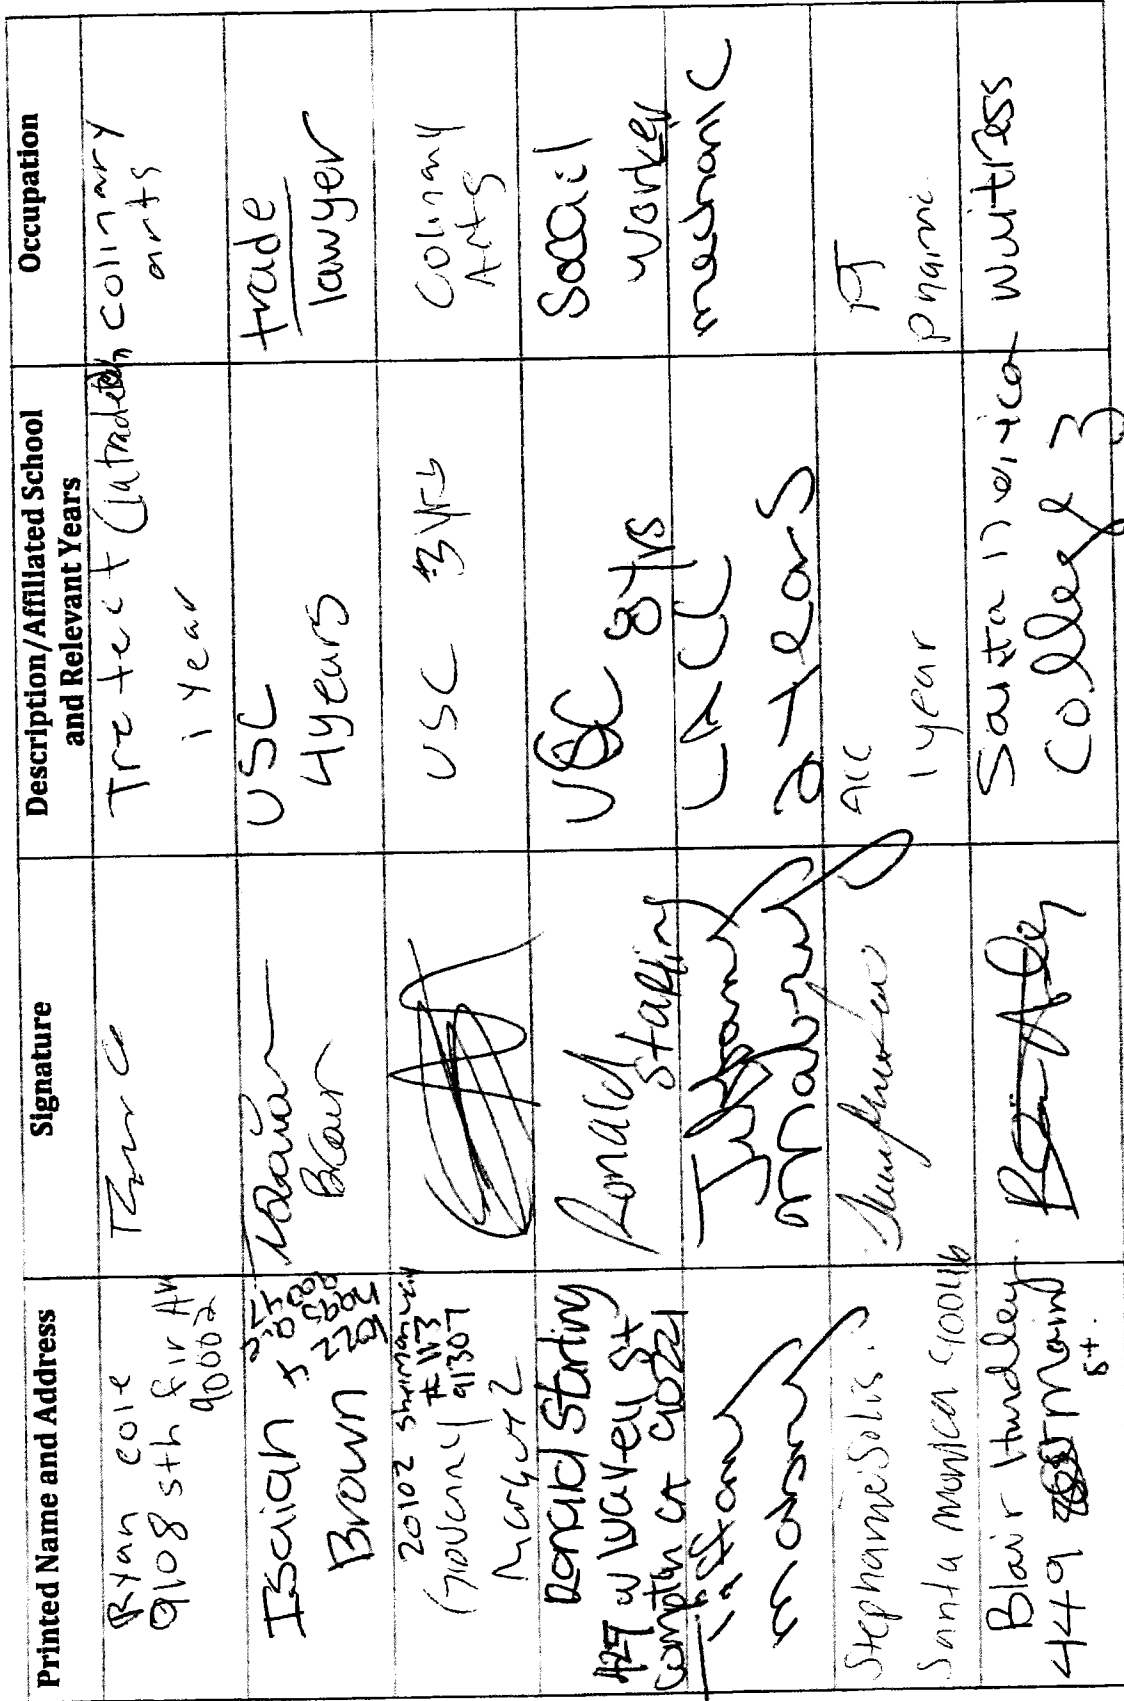 Printed Name and Address
Signature
Description/Affiliated School
and Relevant Years
Occupation
Ryan cole
9108 sth fir Av
90002
Tre tect (Latradetech
1 year
colinary
arts
Isaiah
Brown
Isaiah
Brown
USC
4 years
trade
lawyer
20102 Sherman way
# 113
Giovanny 91307
Marquez
USC 3 yrs
Colinary
Arts
Ronald Starling
429 w Warey St
Compton CA 90221
Ronald
Starling
USC 8 Yrs
Socail
Worker
Tiffany
mabrny
Tiffany
mabrny
LACC
2 Years
mechanic
Stephanie Solis.
Santa Monica 90046
1 year
PT
Blair Hundley
449 Main
st.
Santa Monica
College 3
Waitress